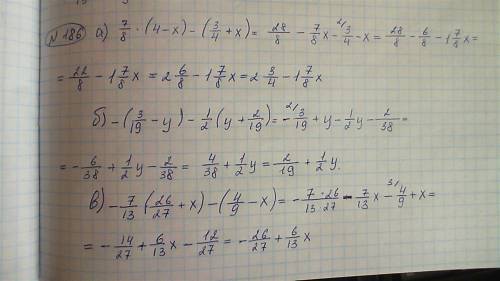 №186 а) 7/8 · (4-x) - (3/4 + x) = 28/8 - 7/8 x - ²⁾3/4 - x = 28/8 - 6/8 - 1 7/8 x =
= 22/8 - 1 7/8 x = 2 6/8 - 1 7/8 x = 2 3/4 - 1 7/8 x
б) - (3/19 - y) - 1/2 (y + 2/19) = - ²⁾3/19 + y - 1/2 y - 2/38 =
= - 6/38 + 1/2 y - 2/38 = 4/38 + 1/2 y = 2/19 + 1/2 y.
в) - 7/13 (26/27 + x) - (4/9 - x) = - 7·26/13·27 - 7/13 x - ³⁾4/9 + x =
= - 14/27 + 6/13 x - 12/27 = - 26/27 + 6/13 x